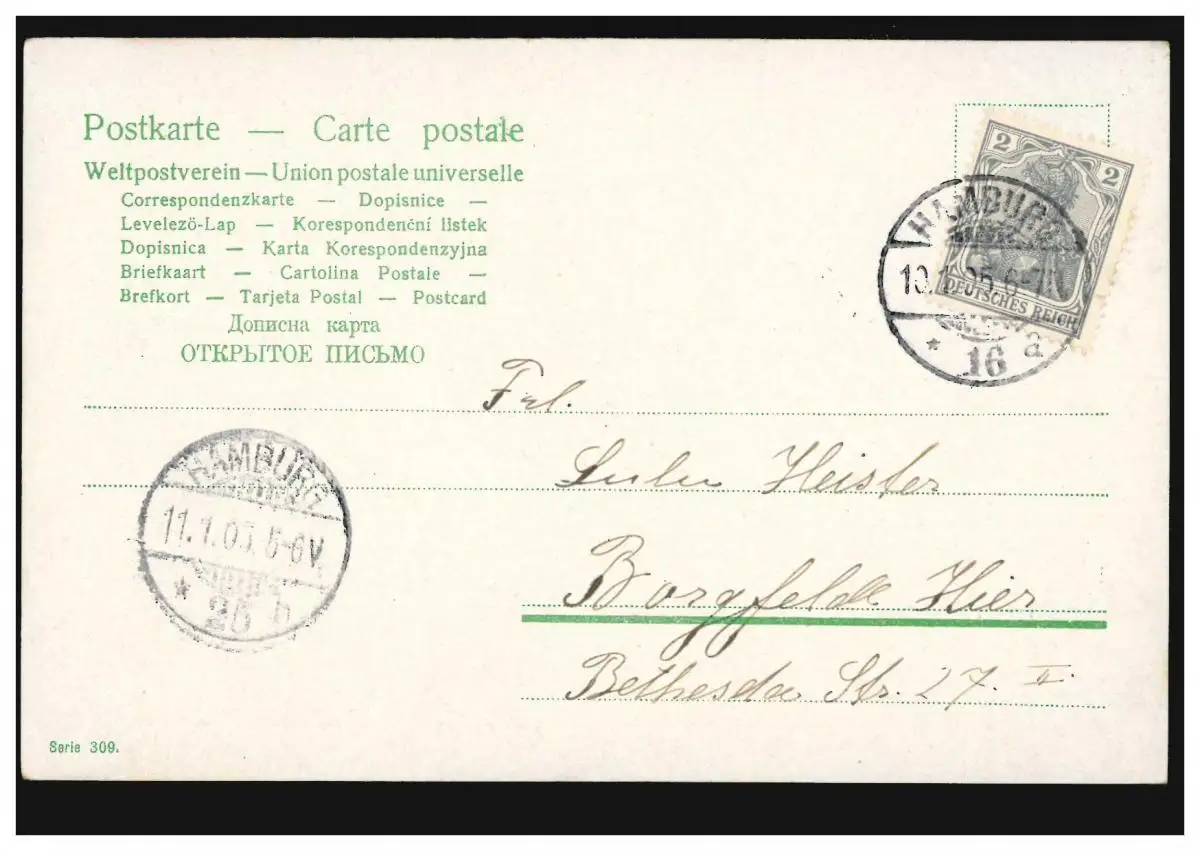 Postkarte — Carte postale
Weltpostverein — Union postale universelle
Correspondenzkarte — Dopisnice —
Levelező-Lap — Korespondenční lístek
Dopisnica — Karta Korespondenzyjna
Briefkaart — Cartolina Postale —
Brefkort — Tarjeta Postal — Postcard
Дописна карта
ОТКРЫТОЕ ПИСЬМО
2 2
DEUTSCHES REICH
HAMBURG
10.1.05.6-7N
* 16 a
Frl.
Lulu Heister
Borgfelde Hier
Bethesda Str. 27. II.
HAMBURG
11.1.05. 5-6V.
* 26 b
Serie 309.